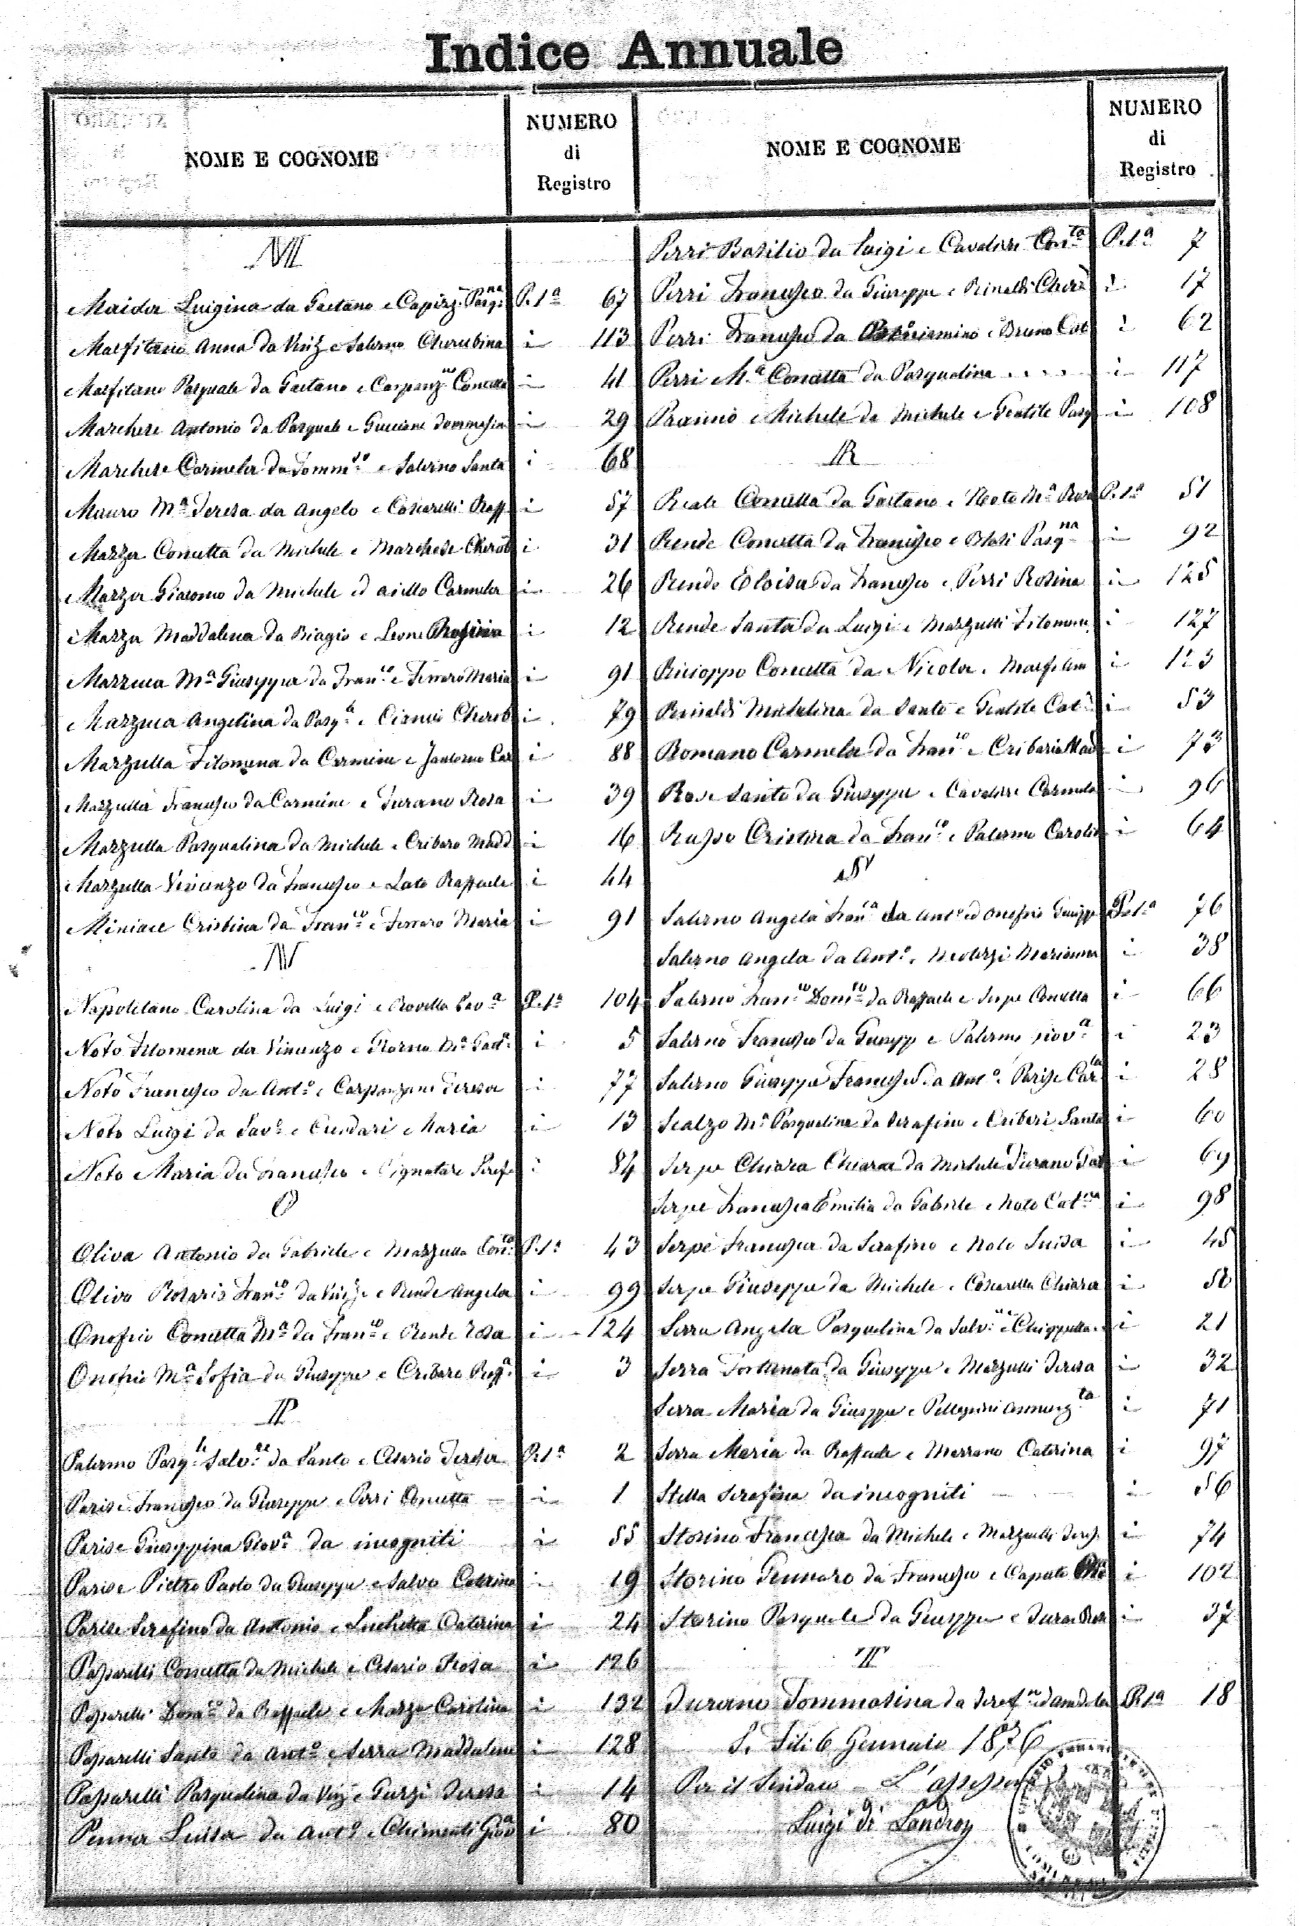 Indice Annuale
NOME E COGNOME
NUMERO
di
Registro
M
Maida Luigina da Gaetano e Capizz. Pasq.na P. 1a 67
Malfitano Anna da Vinz. e Salerno Cherubina i 113
Malfitano Pasquale da Gaetano e Carpanz.no Concetta i 41
Marchese Antonio da Pasquale e Guccione Domenica i 29
Marchese Carmela da Tomm.so e Salerno Santa i 68
Mauro M.a Teresa da Angelo e Cosarelli Raff. i 57
Mazza Concetta da Michele e Marchese Cherub i 31
Mazza Giacomo da Michele ed Aiello Carmela i 26
Mazza Maddalena da Biagio e Leone Rosina i 12
Mazzuca M.a Giuseppa da Fran.co e Ferraro Maria i 91
Mazzuca Angelina da Pasq.le e Cherub i 79
Mazzulla Filomena da Carmine e Car i 88
Mazzulla Francesco da Carmine e Turano Rosa i 39
Mazzulla Pasqualina da Michele e Cribaro Madd i 16
Mazzulla Vincenzo da Francesco e Lato Raffaele i 44
Miniace Cristina da Fran.co e Ferraro Maria i 91
N
Napolitano Carolina da Luigi e Rovella Sav.a P. 1a 104
Noto Filomena da Vincenzo e M.a Gaet.a i 5
Noto Francesco da Ant.o e Carpanzano Teresa i 77
Noto Luigi da Sav.o e Cundari Maria i 13
Noto Maria da Francesco e Pignataro Seraf. i 84
O
Oliva Antonio da Gabriele e Mazzulla Con.ta P. 1a 43
Oliva Rosario Fran.co da Vinz. e Rende Angela i 99
Onofrio Concetta M.a da Fran.co e Rende Rosa i 124
Onofrio M.a Sofia da Giuseppe e Cribaro Raff.a i 3
P
Palermo Pasq.le Salv.re da Santo e Cesario Teresa P. 1a 2
Parise Francesco da Giuseppe e Perri Concetta i 1
Parise Giuseppina Giov.a da incogniti i 55
Parise Pietro Paolo da Giuseppe e Salvo Caterina i 19
Parise Serafino da Antonio e Luchetta Caterina i 24
Passarelli Concetta da Michele e Cesario Rosa i 126
Passarelli Dom.co da Raffaele e Mazza Carolina i 132
Passarelli Santo da Ant.o e Serra Maddalena i 128
Passarelli Pasqualina da Vinz. e Guzzi Teresa i 14
Penna Luisa da Ant.o e Chimenti Giov i 80
NOME E COGNOME
NUMERO
di
Registro
Perri Basilio da Luigi e Cavaliere Con.ta P. 1a 7
Perri Francesca da Giuseppe e Rinaldi Cher. i 17
Perri Francesco da Beniamino e Bruno Cat i 62
Perri M.a Concetta da Pasqualina .... i 117
Praino Michele da Michele e Gentile Pasq i 108
R
Reale Concetta da Gaetano e Noto M.a Rosa P. 1a 51
Rende Concetta da Francesco e Blasi Pasq.na i 92
Rende Eloisa da Francesco e Perri Rosina i 125
Rende Santa da Luigi e Mazzulli Filomena i 127
Ricioppo Concetta da Nicola e Malfitan i 123
Rinaldi Madalina da Santo e Gentile Cat. i 53
Romano Carmela da Fran.co e Cribari Mad. i 73
Rose Santo da Giuseppe e Cavaliere Carmela i 96
Russo Cristina da Fran.co e Palermo Carolin i 64
S
Salerno Angela Fran.a da Ant.o ed Onofrio Giusepp P. 1a 76
Salerno Angela da Ant.o e Marianna i 38
Salerno Fran.co Dom.co da Raffaele e Serpe Concetta i 66
Salerno Francesco da Giusepp e Palermo Giov.a i 23
Salerno Giuseppe Francesco da Ant.o e Parise Car.ta i 28
Scalzo M.a Pasqualina da Serafino e Cribari Santa i 60
Serpe Chiara Chiara da Michele Turano Gae i 69
Serpe Francesca Emilia da Gabriele e Noto Cat.na i 98
Serpe Francesca da Serafino e Noto Luisa i 45
Serpe Giuseppe da Michele e Cosarella Chiara i 50
Serra Angela Pasqualina da Salv.re e Chiappetta i 21
Serra Fortunata da Giuseppe e Mazzulli Teresa i 32
Serra Maria da Giuseppe e Pellegrini Annunz.ta i 71
Serra Maria da Raffaele e Marrano Caterina i 97
Stella Serafina da incogniti i 56
Storino Francesca da Michele e Mazzulli Teres. i 74
Storino Gennaro da Francesco e Caputo i 102
Storino Pasquale da Giuseppe e Turano Rosa i 37
T
Turano Tommasina da Seraf.no P. 1a 18
S. Fili 6 Gennaio 1876
Per il Sindaco - L'assessore
Luigi di Landroy